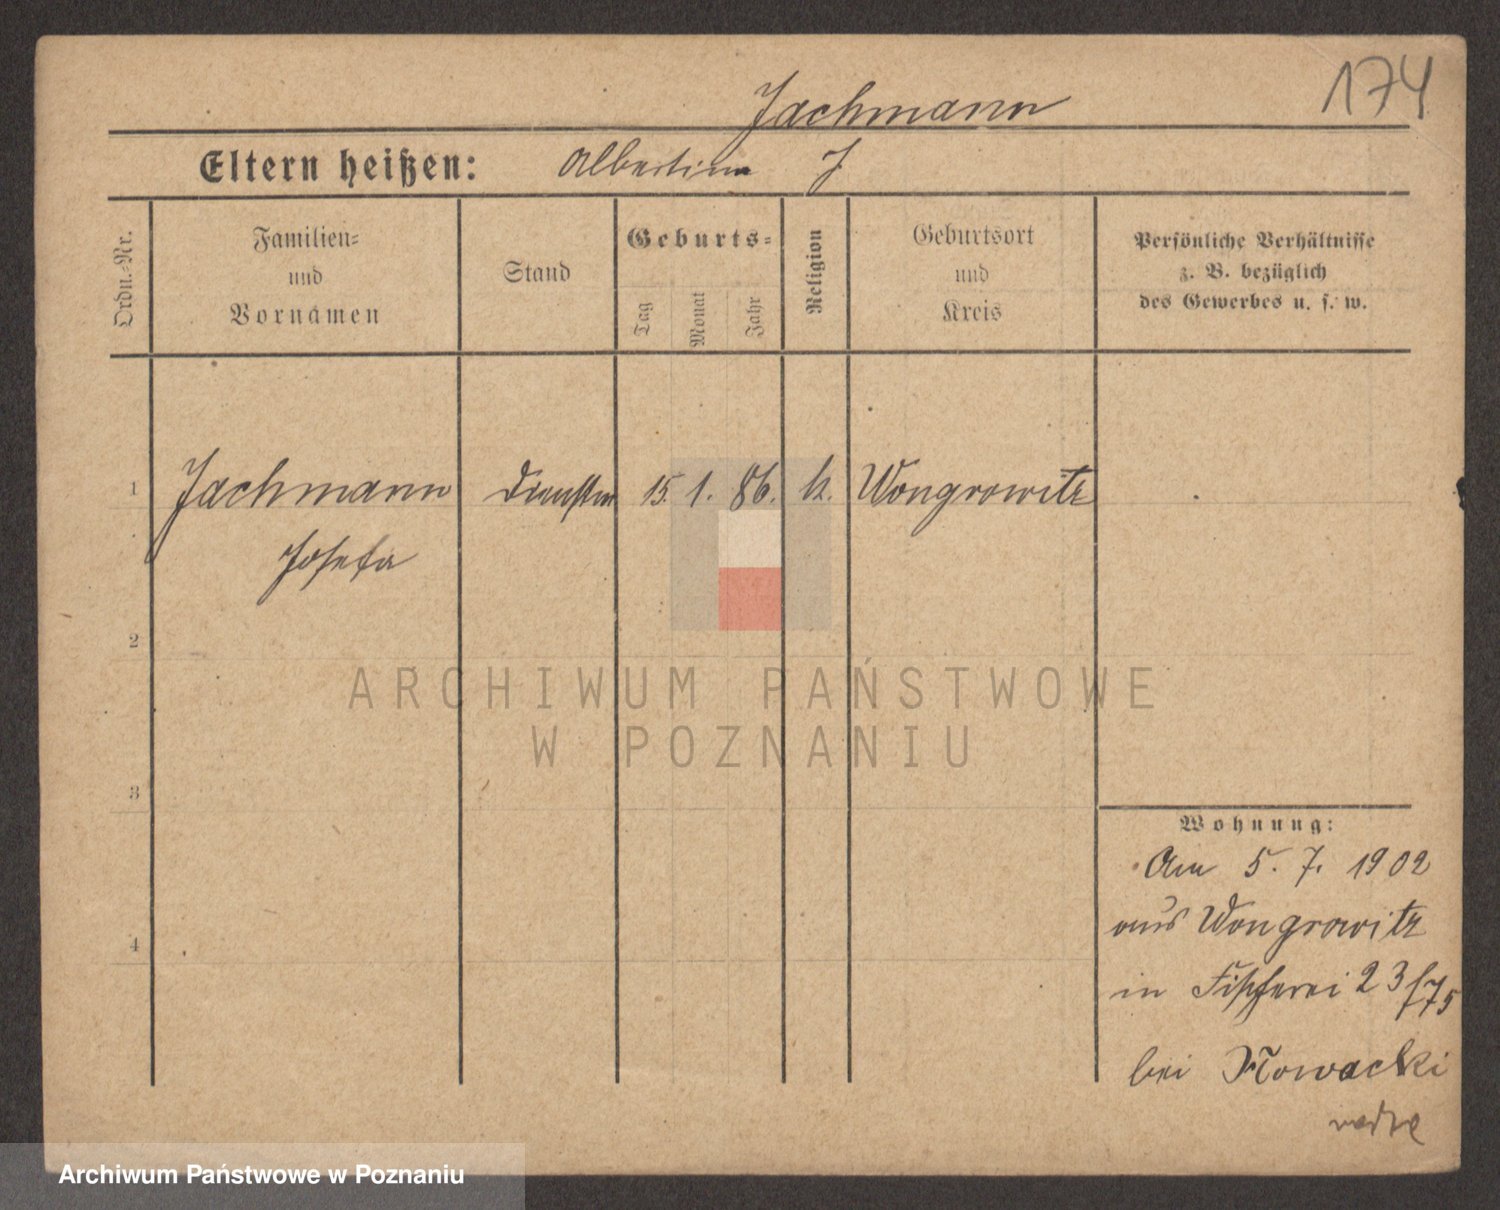 174
Jachmann
Eltern heißen: Albertine J.
Ordn.-Nr.
Familien-
und
Vornamen
Stand
Geburts-
Tag
Monat
Jahr
Religion
Geburtsort
und
Kreis
Persönliche Verhältnisse
z. B. bezüglich
des Gewerbes u. s. w.
1 Jachmann 15. 1. 86. k. Wongrowitz
Josefa
2
ARCHIWUM PAŃSTWOWE
W POZNANIU
3
Wohnung:
Am 5. 7. 1902
aus Wongrowitz
4
in Fischerei 23
bei Nowacki
Archiwum Państwowe w Poznaniu